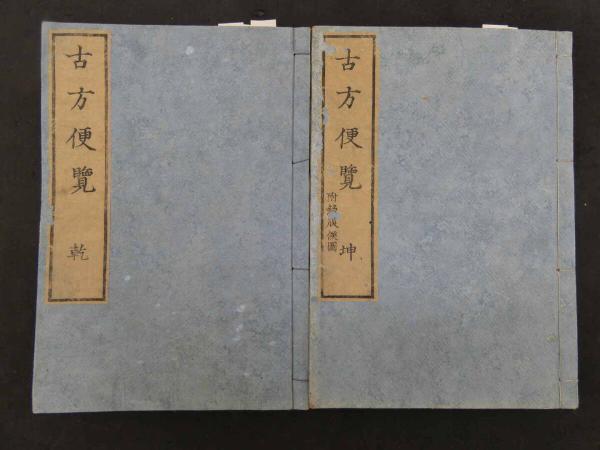 古方便覽 乾
古方便覽 坤
附録腹候圖